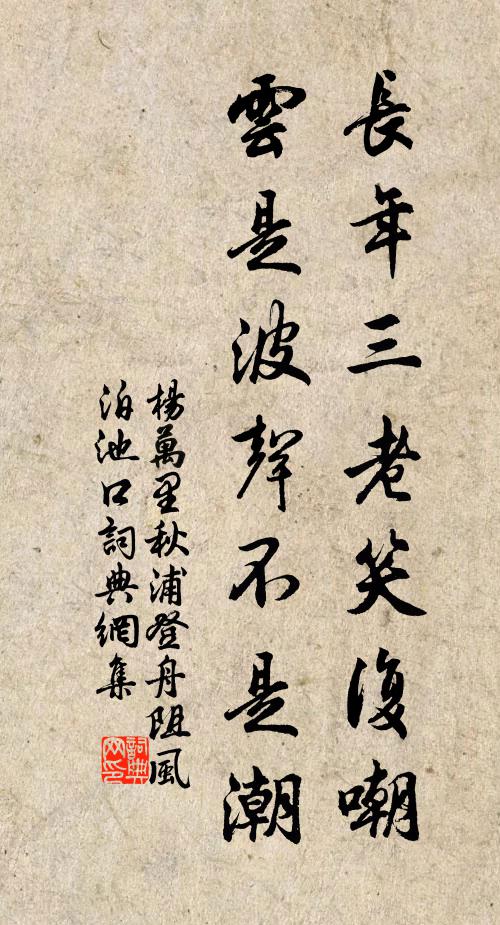 長年三老笑復嘲
雲是波聲不是潮
楊萬里秋浦登舟阻風
泊池口詞典網集
詞典網印